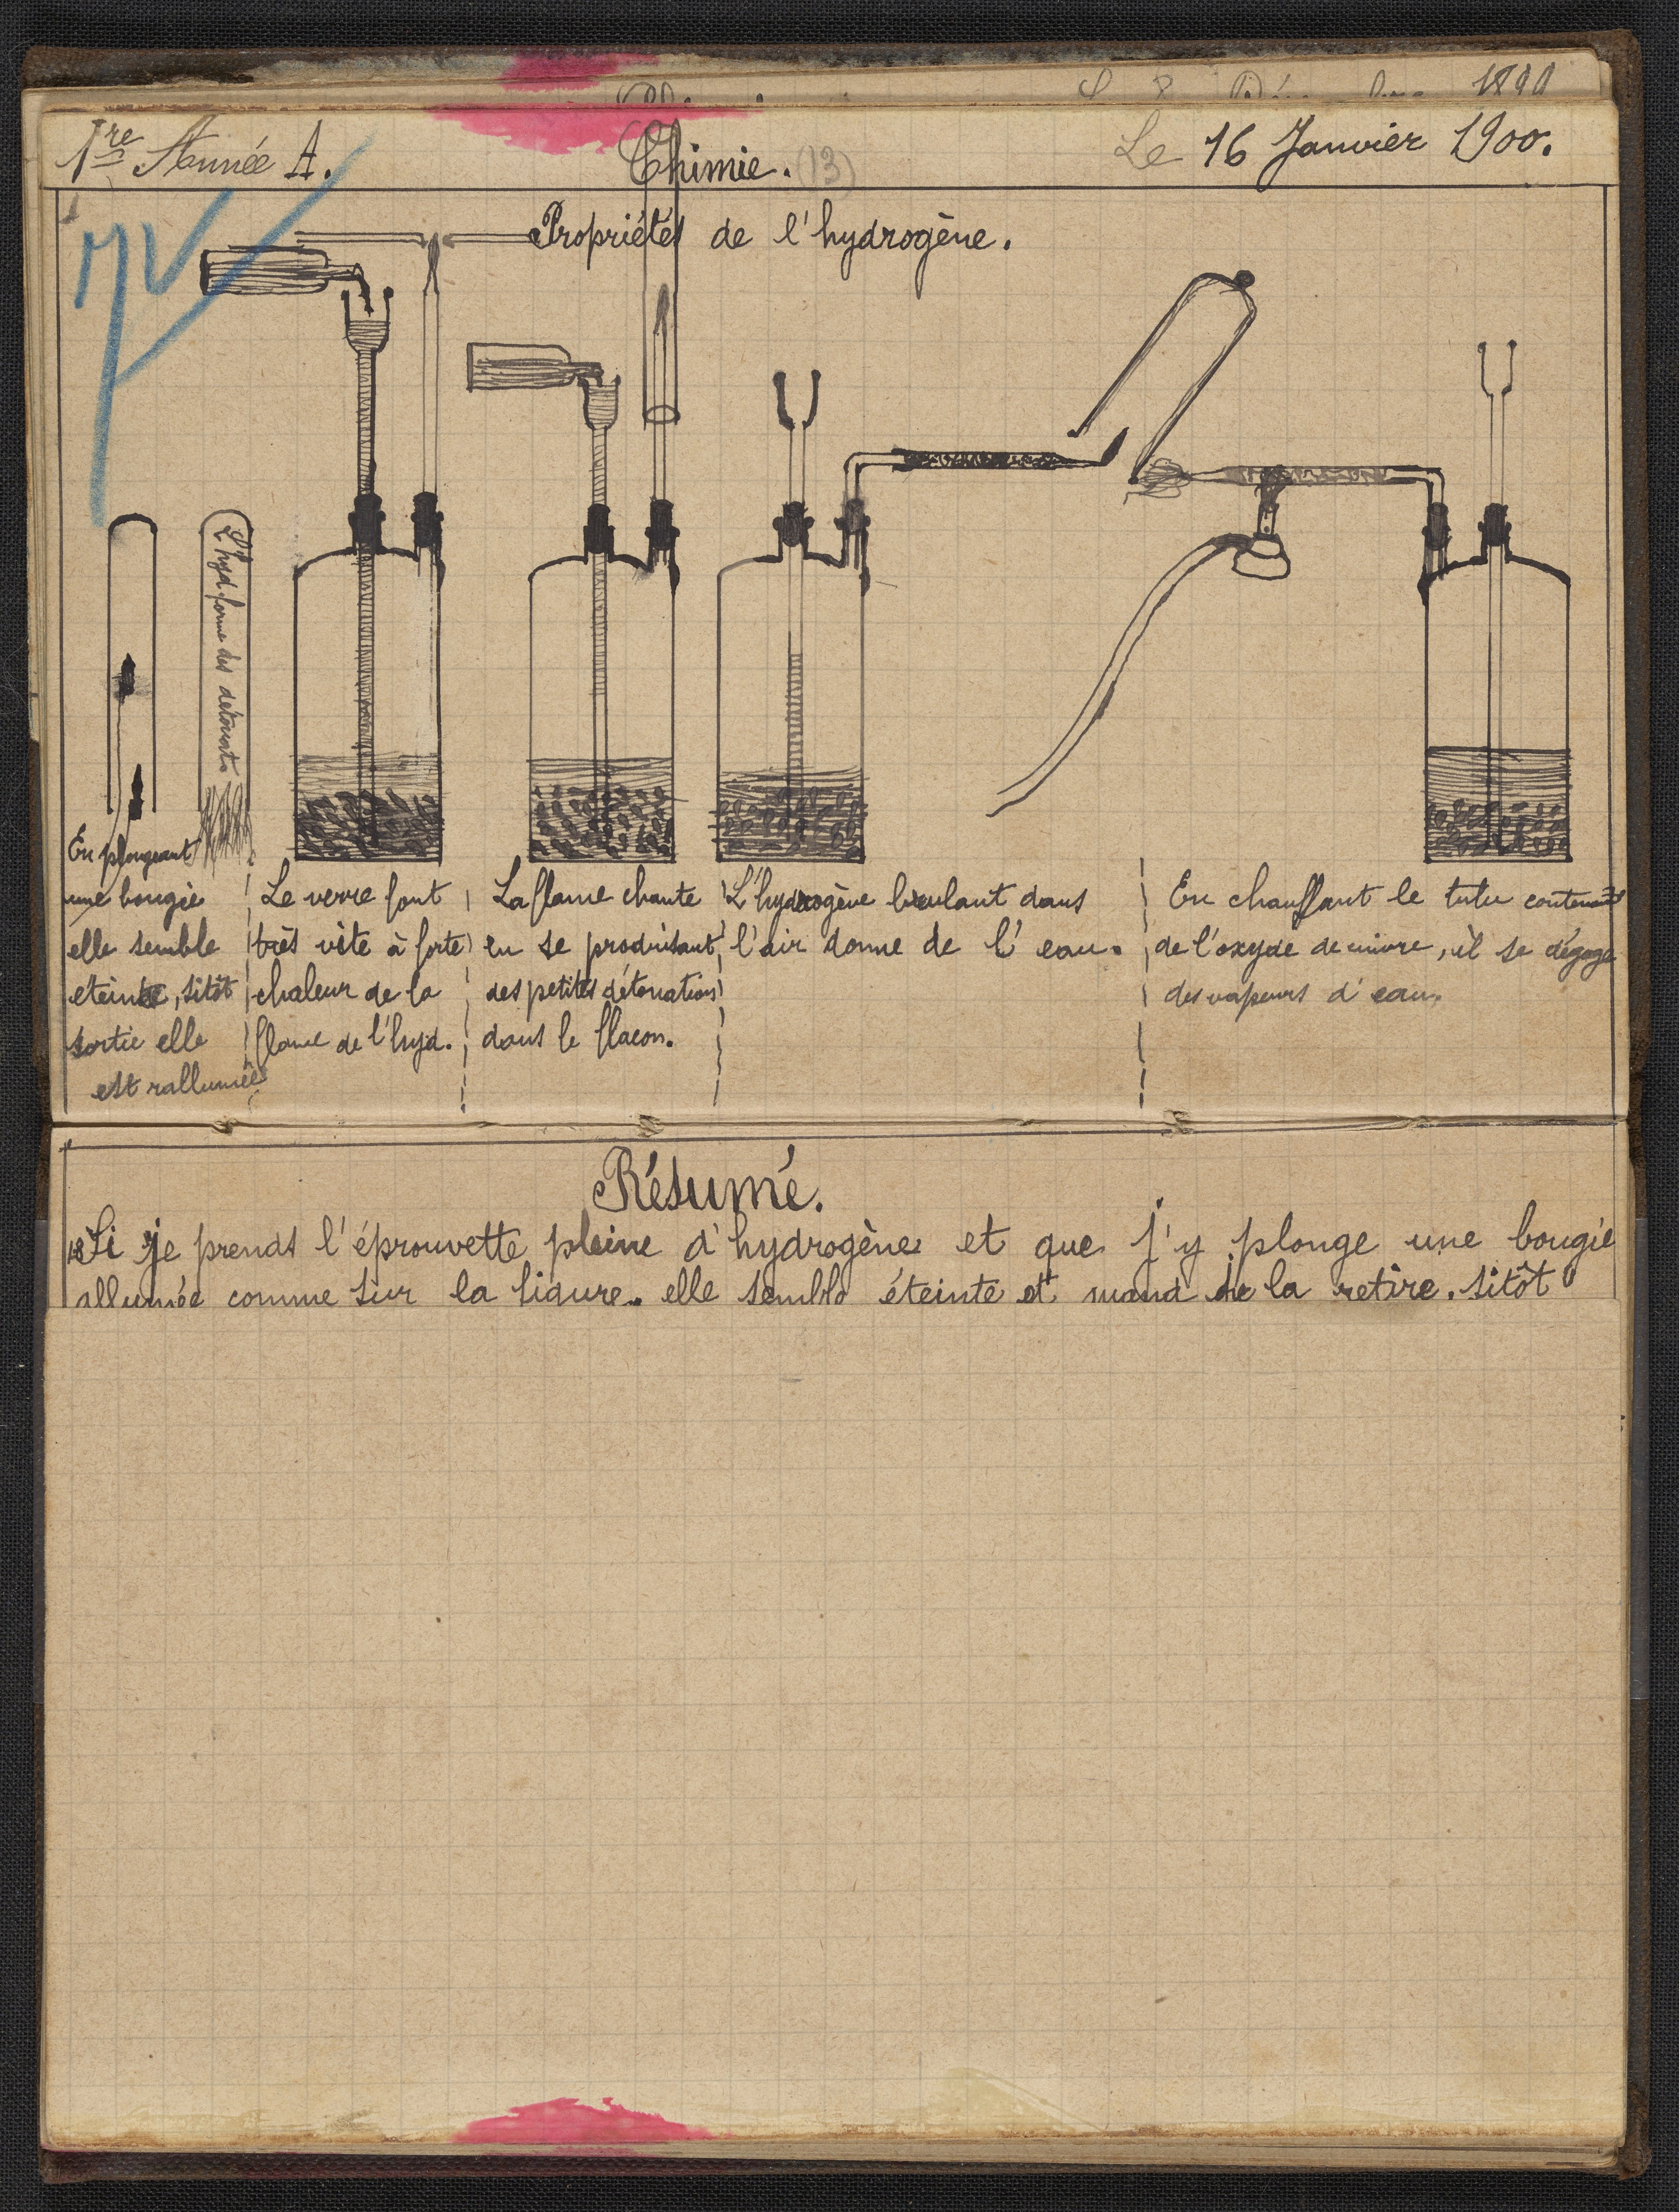 1891
1re Année A.
Chimie. (13)
Le 16 Janvier 1900.
Propriétés de l'hydrogène.
L'hyd forme des detonat.
En plongeant
une bougie
elle semble
eteinte, sitôt
sortie elle
est rallumée
Le verre font
très vite à forte
chaleur de la
flame de l'hyd.
La flame chante
en se produisant
des petites détonations
dans le flacon.
L'hydrogène brulant dans
l'air donne de l'eau.
En chauffant le tutu contenant
de l'oxyde de cuivre, il se dégage
des vapeurs d'eau.
Résumé.
Si je prends l'éprouvette pleine d'hydrogène et que j'y plonge une bougie
allumée comme sur la figure, elle semble éteinte et quand je la retire, sitôt